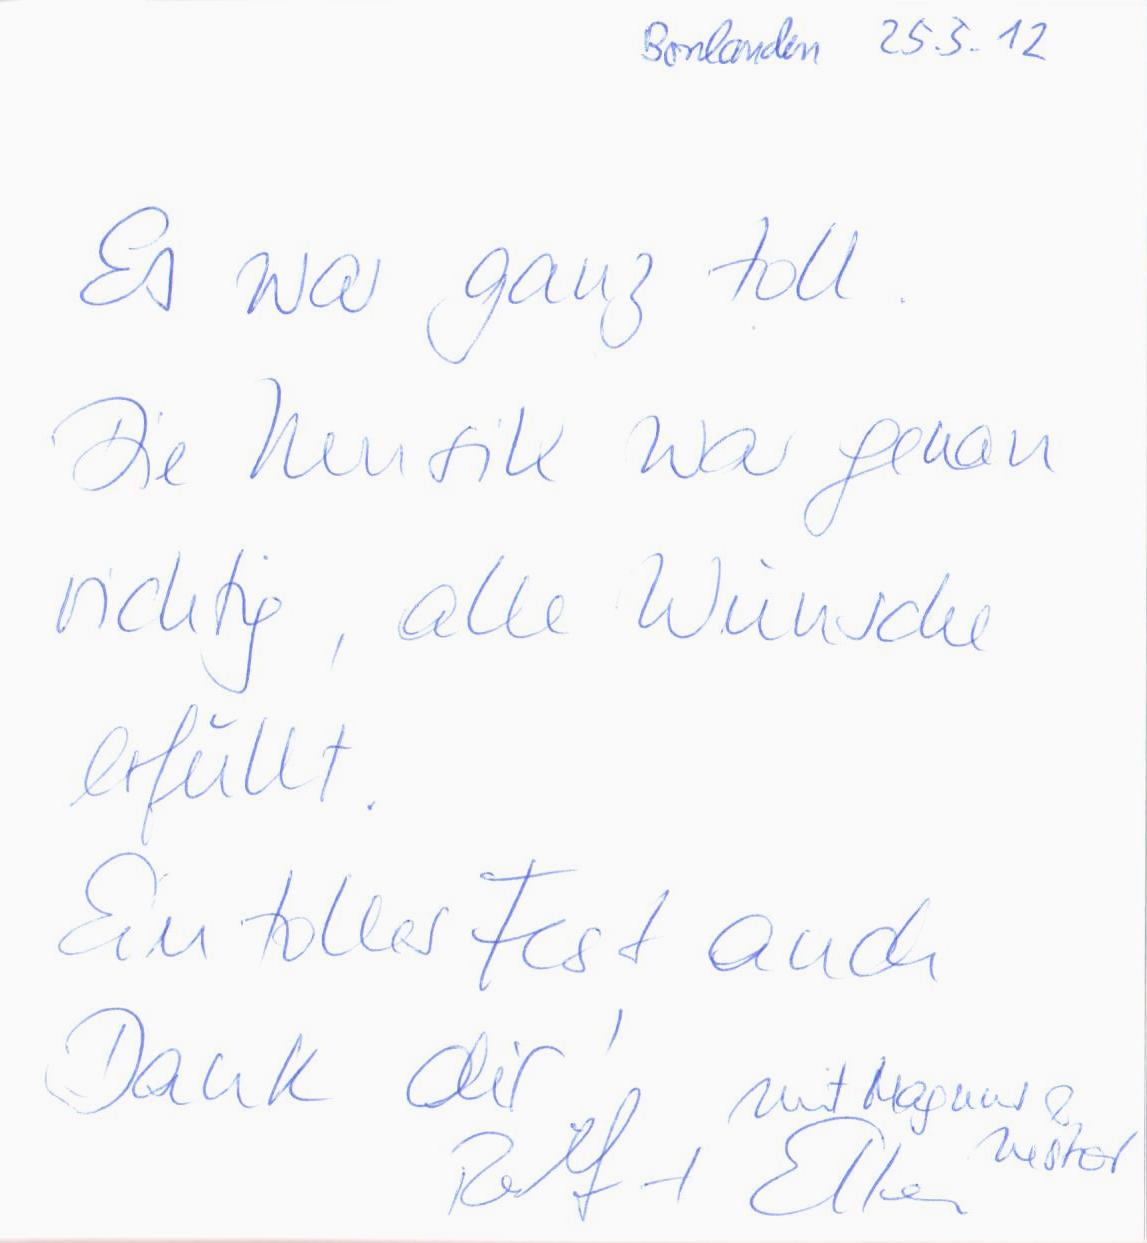 Bonlanden 25.3.12
Es war ganz toll.
Die Musik war genau
richtig, alle Wünsche
erfüllt.
Ein tolles Fest auch
Dank dir!
mit Magnus &
Nestor
Ralf + Elke